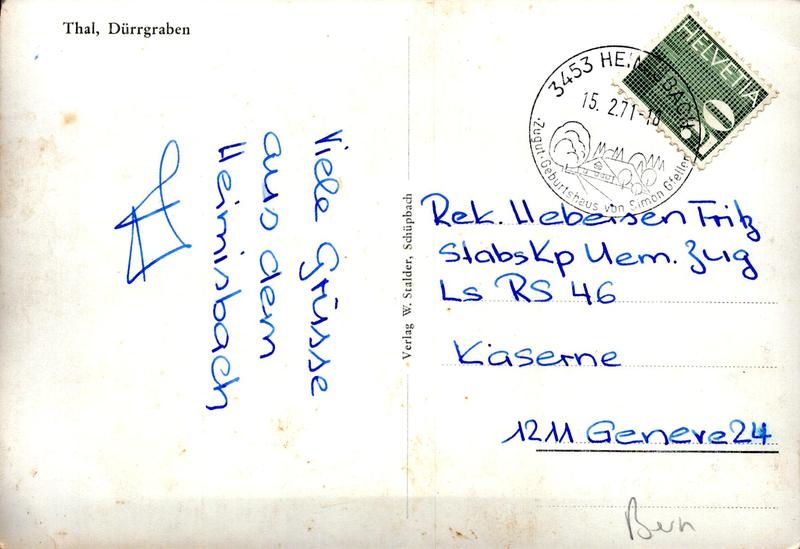 Thal, Dürrgraben
Viele Grüsse
aus dem
Heimisbach
Verlag W. Stalder, Schüpbach
HELVETIA
10
3453 HEIMISBACH
15. 2.71-18
Zugut-Geburtshaus von Simon Gfeller
Rek. Uebersen Fritz
StabsKp Uem. Zug
Ls RS 46
Kaserne
1211 Geneve 24
Bern